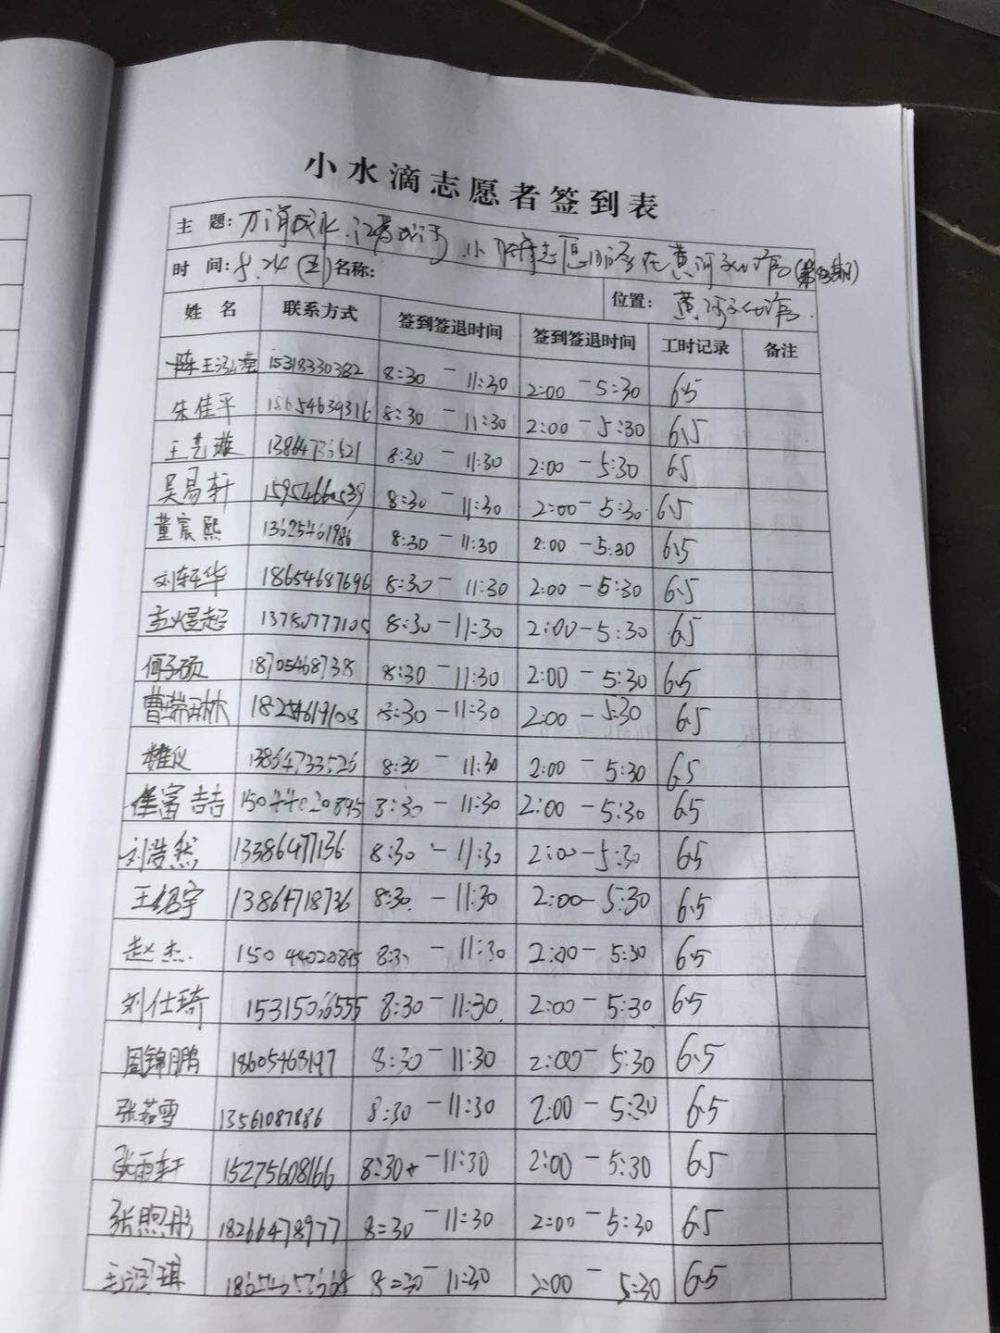 小水滴志愿者签到表
主 题: 小 志愿 在黄河
时 间: 8.24(五) 名称:
位置: 黄河
姓 名 联系方式 签到签退时间 签到签退时间 工时记录 备注
陈王 15318330382 8:30 - 11:30 2:00 - 5:30 6.5
朱佳平 18654639316 8:30 - 11:30 2:00 - 5:30 6.5
王艺璇 8:30 - 11:30 2:00 - 5:30 6.5
吴易轩 8:30 - 11:30 2:00 - 5:30 6.5
董宸熙 13625461986 8:30 - 11:30 2:00 - 5:30 6.5
刘轩华 18654687696 8:30 - 11:30 2:00 - 5:30 6.5
孟煜超 8:30 - 11:30 2:00 - 5:30 6.5
何子硕 18705468738 8:30 - 11:30 2:00 - 5:30 6.5
曹瑞琳 8:30 - 11:30 2:00 - 5:30 6.5
13864733526 8:30 - 11:30 2:00 - 5:30 6.5
15044020895 8:30 - 11:30 2:00 - 5:30 6.5
刘浩然 13386477136 8:30 - 11:30 2:00 - 5:30 6.5
王绍宇 13864718736 8:30 - 11:30 2:00 - 5:30 6.5
赵杰 15044020895 8:30 - 11:30 2:00 - 5:30 6.5
刘仕琦 15315066555 8:30 - 11:30 2:00 - 5:30 6.5
周锦鹏 18605468197 8:30 - 11:30 2:00 - 5:30 6.5
张若雪 13561087886 8:30 - 11:30 2:00 - 5:30 6.5
张雨轩 15275608166 8:30 - 11:30 2:00 - 5:30 6.5
张照彤 18266478977 8:30 - 11:30 2:00 - 5:30 6.5
王润琪 8:30 - 11:30 2:00 - 5:30 6.5